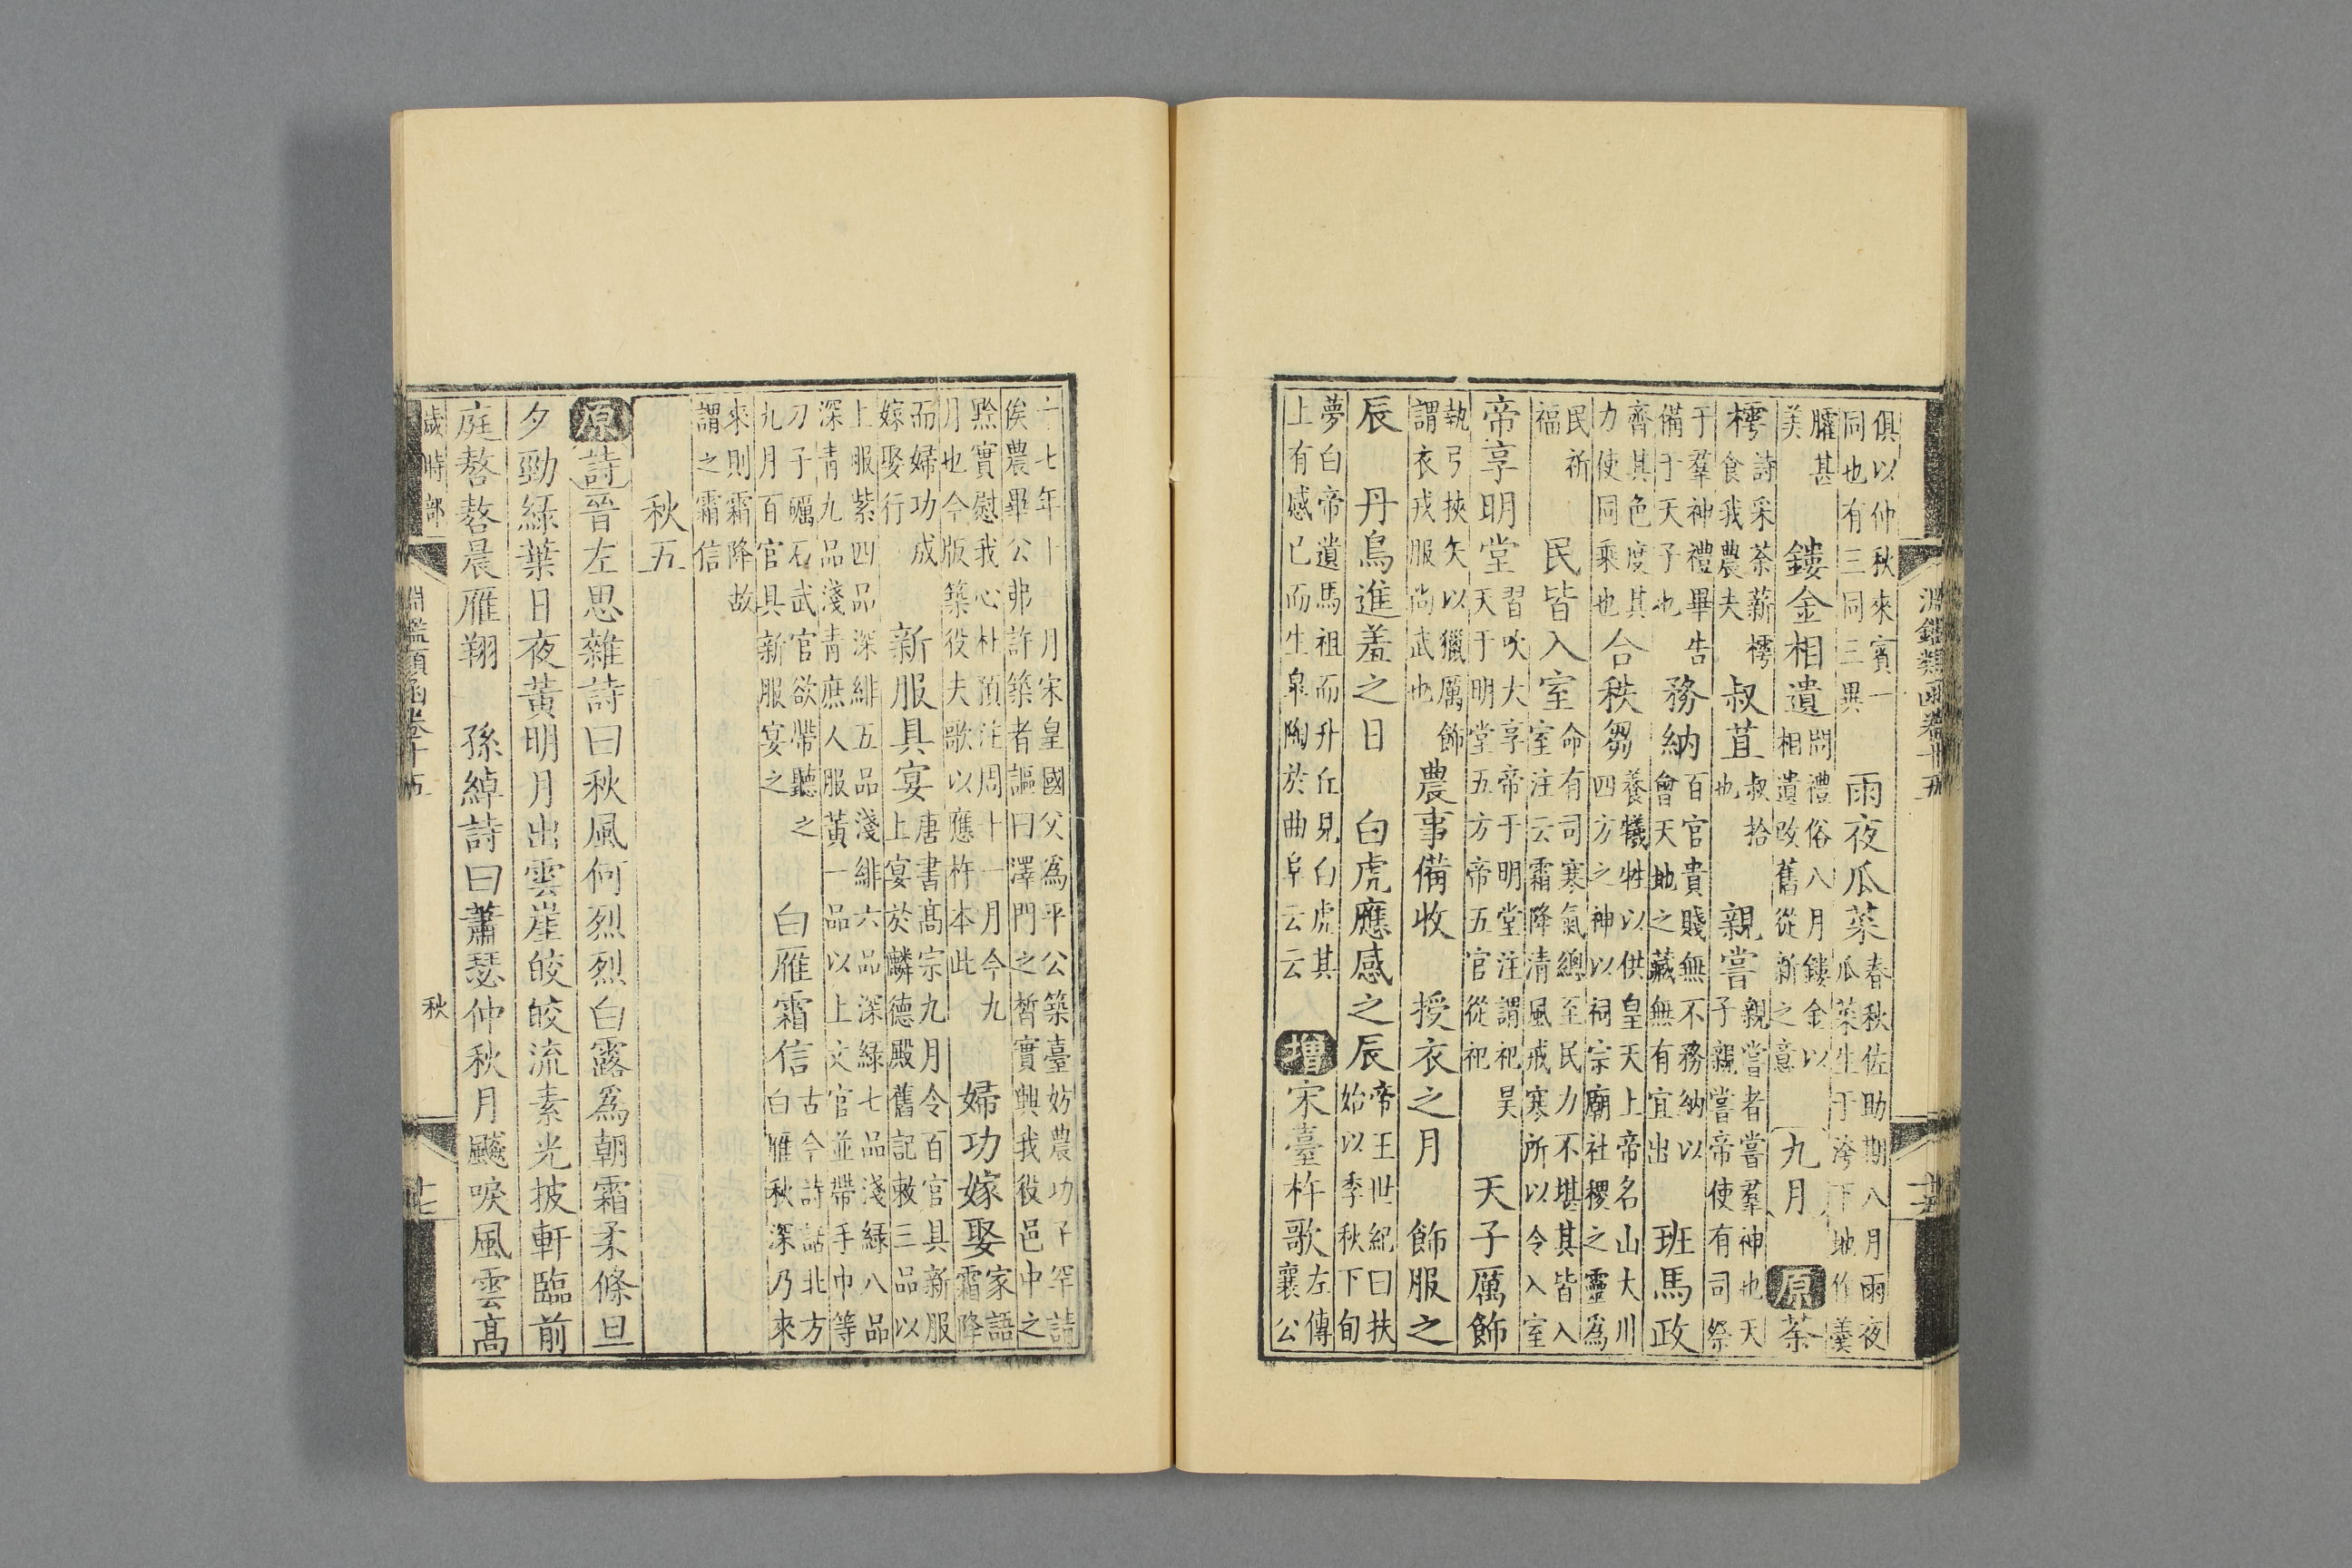 淵鑑類函卷十五
俱以仲秋來賓一
同也有三同三異
雨夜瓜菜
春秋佐助期八月雨夜
瓜菜生于洿下地作羹
臛甚
美
鏤金相遺
問禮俗八月鏤金以
相遺改舊從新之意
九月
原
荼
樗
詩采荼薪樗
食我農夫
叔苴
叔拾
也
親嘗
親嘗者嘗羣神也天
子親嘗帝使有司祭
于羣神禮畢告
備于天子也
務納
百官貴賤無不務納以
會天地之藏無有宜出
班馬政
齊其色度其
力使同乘也
合秩芻
養犧牲以供皇天上帝名山大川
四方之神以祠宗廟社稷之靈爲
民祈
福
民皆入室
命有司寒氣總至民力不堪其皆入
室注云霜降清風戒寒所以令入室
帝享明堂
習吹大享帝于明堂注謂祀昊
天于明堂五方帝五官從祀
天子厲飾
執弓挾矢以獵厲飾
謂衣戎服尚武也
農事備收　授衣之月　飾服之
辰　丹鳥進羞之日　白虎應感之辰
帝王世紀曰扶
始以季秋下旬
夢白帝遺馬祖而升丘見白虎其
上有感已而生臯陶於曲阜云云
增
宋臺杵歌
左傳
襄公
十七年十一月宋皇國父爲平公築臺妨農功子罕請
俟農畢公弗許築者謳曰澤門之晳實興我役邑中之
黔實慰我心杜預注周十一月今九
月也今版築役夫歌以應杵本此
婦功嫁娶
家語
霜降
而婦功成
嫁娶行
新服具宴
唐書髙宗九月令百官具新服
上宴於麟德殿舊記敕三品以
上服紫四品深緋五品淺緋六品深綠七品淺綠八品
深青九品淺青庶人服黃一品以上文官並帶手巾等
刀子礪石武官欲帶聽之
九月百官具新服宴之
白雁霜信
古今詩話北方
白雁秋深乃來
來則霜降故
謂之霜信
秋五
原
詩晉左思雜詩曰秋風何烈烈白露爲朝霜柔條旦
夕勁綠葉日夜黃明月出雲崖皎皎流素光披軒臨前
庭嗸嗸晨雁翔　孫綽詩曰蕭瑟仲秋月飈唳風雲髙
歲時部
淵鑑類函卷十五
秋
十七